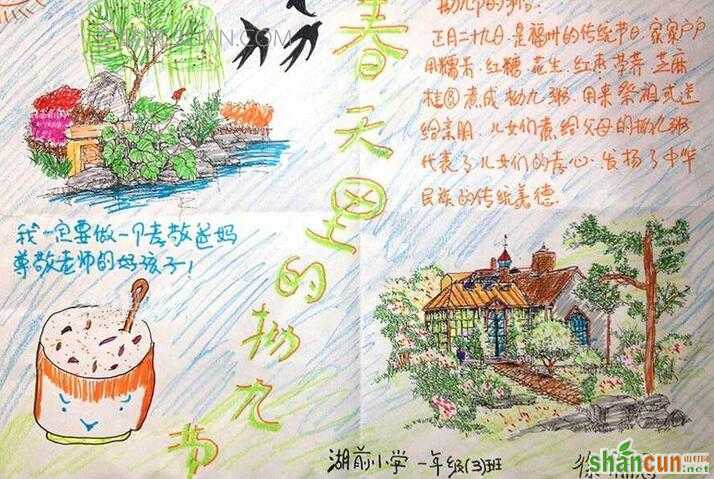 春天里的拗九节
正月二十九日.是福州的传统节日.家家户户
用糯米.红糖.花生.红枣荸荠.芝麻
桂圆煮成拗九粥.用来祭祖或送
给亲朋.儿女们煮给父母的拗九粥
代表了儿女们的孝心.发扬了中华
民族的传统美德.
我一定要做一个孝敬爸妈
尊敬老师的好孩子!
湖前小学 一年级(3)班 徐
shancun